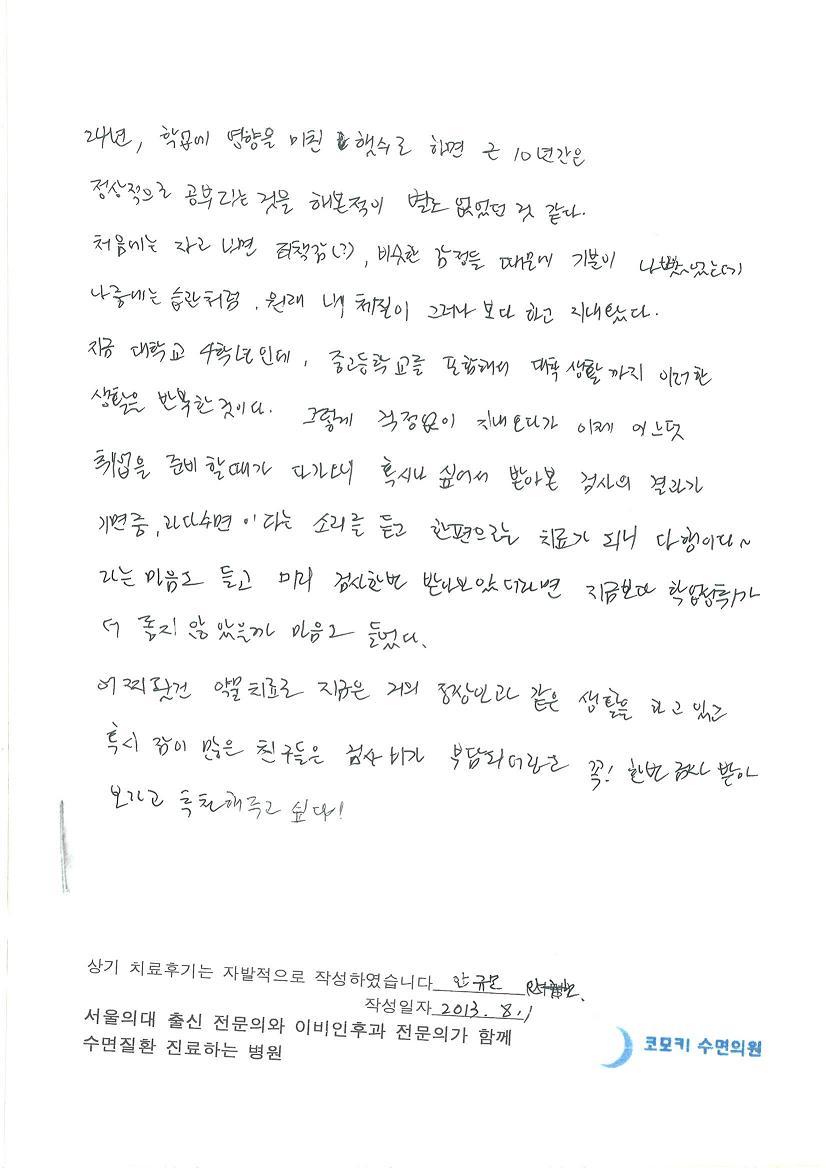 24년, 학업에 영향을 미친 햇수로 하면 근 10년간은
정상적으로 공부라는 것을 해본적이 별로 없었던 것 같다.
처음에는 자고 나면 죄책감(?), 비슷한 감정들 때문에 기분이 나빴었는데
나중에는 습관처럼, 원래 내 체질이 그러나 보다 하고 지내왔다.
지금 대학교 4학년인데, 중고등학교를 포함해서 대학 생활까지 이러한
생활을 반복한 것이다. 그렇게 걱정없이 지내오다가 이제 어느덧
취업을 준비할때가 다가오니 혹시나 싶어서 받아본 검사의 결과가
기면증, 과다수면 이라는 소리를 듣고 한편으로는 치료가 되니 다행이다~
라는 마음도 들고 미리 검사한번 받아보았더라면 지금보다 학업성취가
더 좋지 않았을까 마음도 들었다.
어찌됐건 약물치료로 지금은 거의 정상인과 같은 생활을 하고 있고
혹시 잠이 많은 친구들은 검사비가 부담되더라도 꼭! 한번 검사 받아
보라고 추천해주고 싶다!
상기 치료후기는 자발적으로 작성하였습니다 안규모
작성일자 2013. 8. 1
서울의대 출신 전문의와 이비인후과 전문의가 함께
수면질환 진료하는 병원
코모키 수면의원